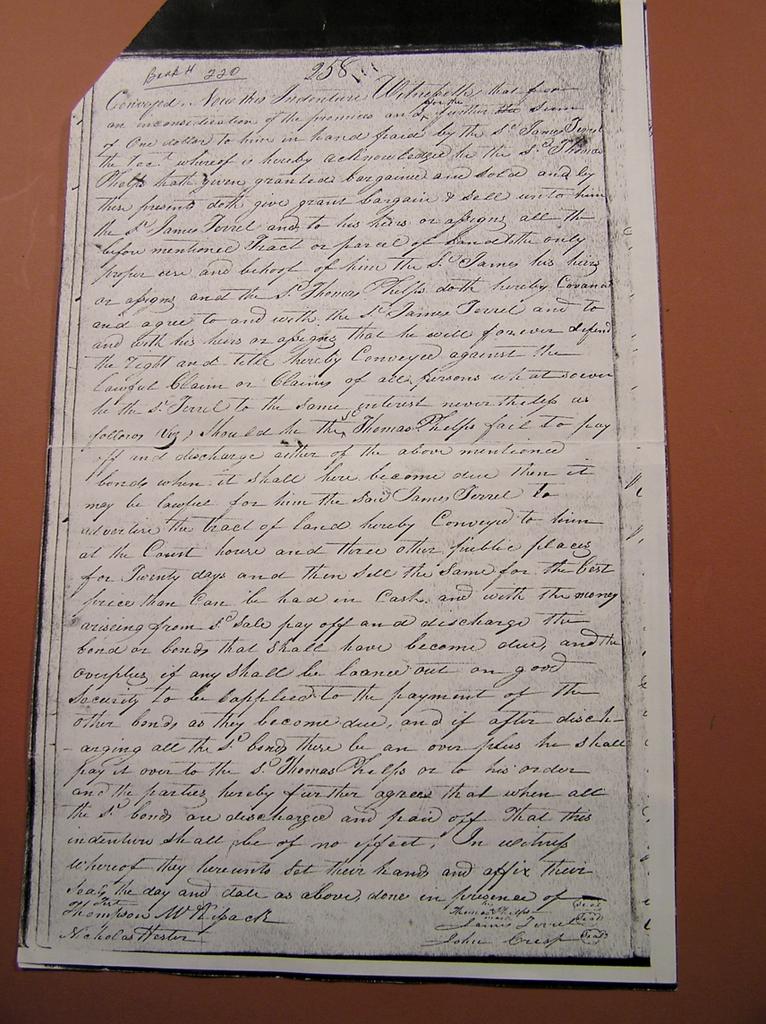 Book H 220
258
Conveyed. Now this Indenture Witnesseth, that for
an inconsideration of the promises and for the further Sum
of One dollar to him in hand paid by the Sd. James Terrel
the rect. whereof is hereby acknowledged he the Sd. Thomas
Phelps hath given granted bargained and Sold and by
these presents doth give grant bargain & Sell unto him
the Sd. James Terrel and to his heirs or assigns all the
before mentioned Tract or parcel of Land to the only
proper use and behoof of him the Sd. James his heirs
or assigns and the Sd. Thomas Phelps doth hereby Covanant
and agree to and with the Sd. James Terrel and to
and with his heirs or assigns that he will forever defend
the right and title hereby Conveyed against the
lawful Claim or Claims of all persons whatsoever
he the Sd. Terrel to the same interest nevertheless as
follows (Viz) Should he the Sd. Thomas Phelps fail to pay
off and discharge either of the above mentioned
bonds when it shall here become due then it
may be lawful for him the Said James Terrel to
advertise the tract of land hereby Conveyed to him
at the Court house and three other public places
for Twenty days and then Sell the Same for the best
price than Can be had in Cash, and with the money
arising from Sd. Sale pay off and discharge the
bond or bonds that shall have become due, and the
overplus if any shall be loaned out on good
Security to be applied to the payment of the
other bonds as they become due, and if after disch-
-arging all the Sd. bonds there be an over plus he shall
pay it over to the Sd. Thomas Phelps or to his order
and the parties hereby further agrees that when all
the Sd. bonds are discharged and paid off That this
indenture shall be of no effect, In witness
whereof they hereunto Set their hands and affix their
Seals the day and date as above, done in presence of
Test
Thompson McKissack
Nicholas Hester
Thomas his mark Phelps (Seal)
James Terrel (Seal)
John Crisp (Seal)